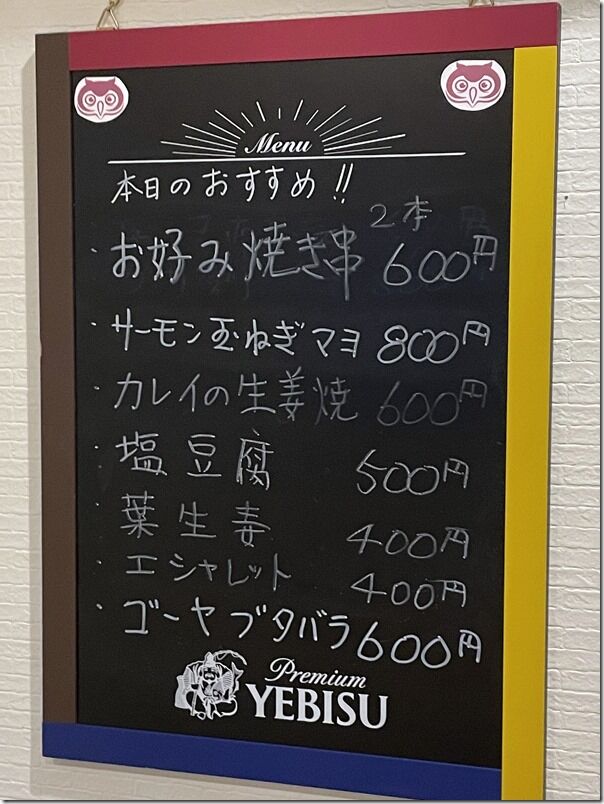 Menu
本日のおすすめ!!
・お好み焼き串 2本 600円
・サーモン玉ねぎマヨ 800円
・カレイの生姜焼 600円
・塩豆腐 500円
・葉生姜 400円
・エシャレット 400円
・ゴーヤブタバラ 600円
Premium
YEBISU